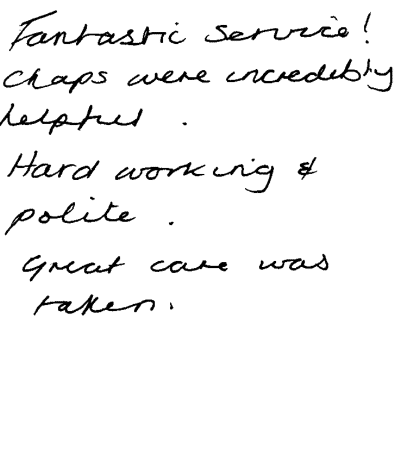 Fantastic service!
Chaps were incredibly
helpful.
Hard working &
polite.
Great care was
taken.